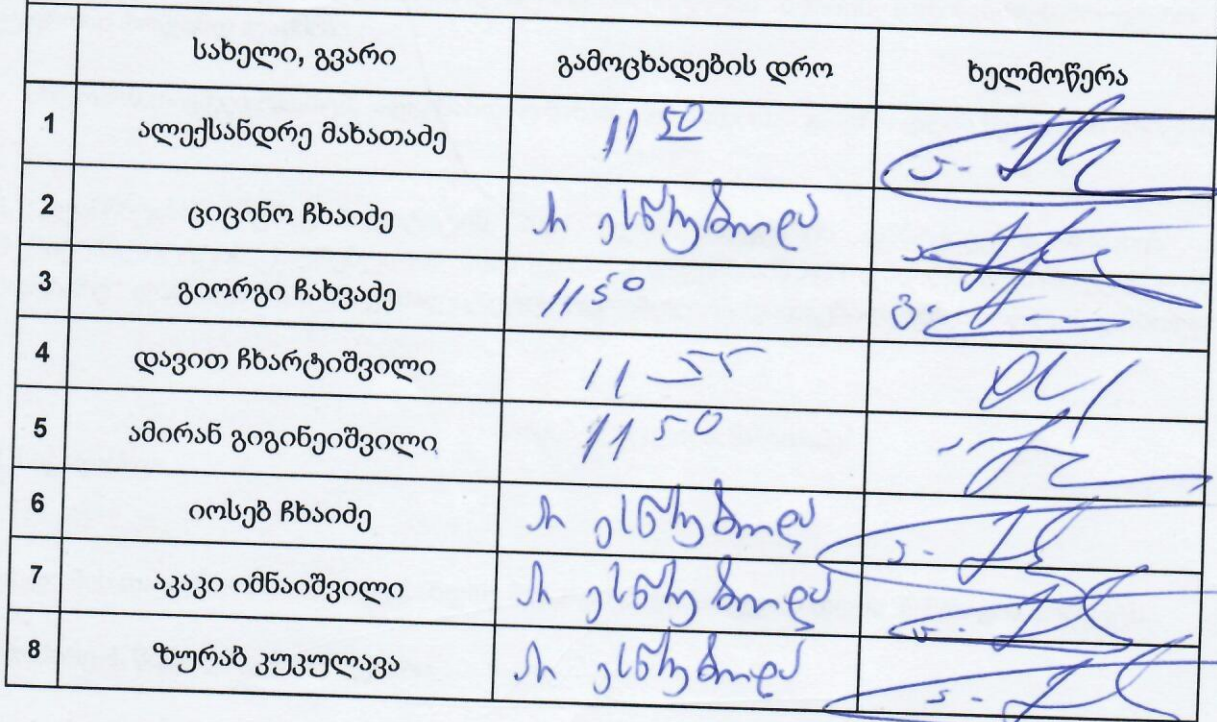 სახელი, გვარი გამოცხადების დრო ხელმოწერა
1 ალექსანდრე მახათაძე 11 50
2 ციცინო ჩხაიძე არ ესწრებოდა
3 გიორგი ჩახვაძე 11 50
4 დავით ჩხარტიშვილი 11 55
5 ამირან გიგინეიშვილი 11 50
6 იოსებ ჩხაიძე არ ესწრებოდა
7 აკაკი იმნაიშვილი არ ესწრებოდა
8 ზურაბ კუკულავა არ ესწრებოდა